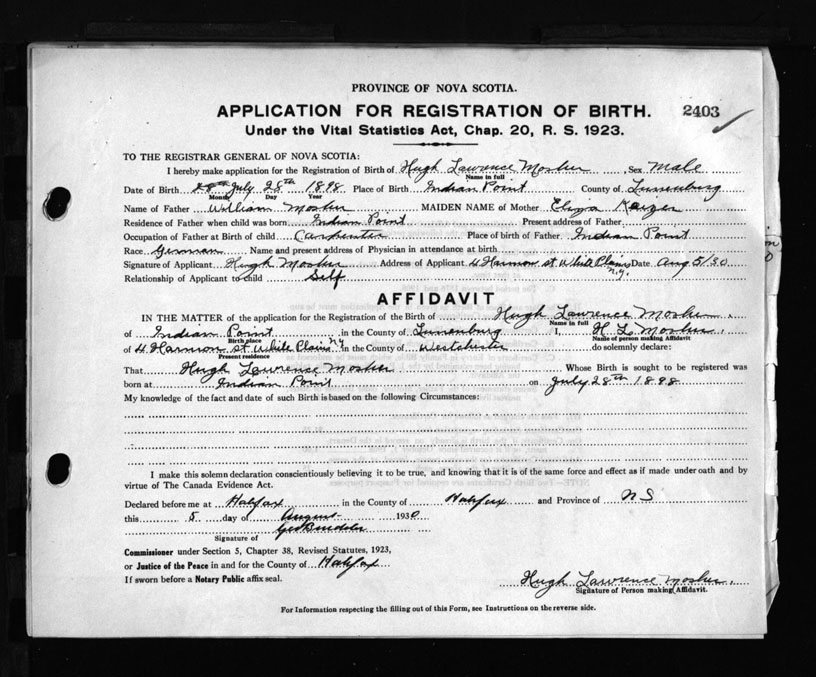 PROVINCE OF NOVA SCOTIA.
APPLICATION FOR REGISTRATION OF BIRTH. 2403
Under the Vital Statistics Act, Chap. 20, R. S. 1923.
TO THE REGISTRAR GENERAL OF NOVA SCOTIA:
I hereby make application for the Registration of Birth of Hugh Lawrence Mosher Sex Male
Name in full
Date of Birth 28th July 28th 1898 Place of Birth Indian Point County of Lunenburg
Month Day Year
Name of Father William Mosher MAIDEN NAME of Mother Eliza Keizer
Residence of Father when child was born Indian Point Present address of Father
Occupation of Father at Birth of child Carpenter Place of birth of Father Indian Point
Race German Name and present address of Physician in attendance at birth
Signature of Applicant Hugh Mosher Address of Applicant 4 Harmon st White Plains N.Y. Date Aug 5/30
Relationship of Applicant to child Self
AFFIDAVIT
IN THE MATTER of the application for the Registration of the Birth of Hugh Lawrence Mosher
Name in full
of Indian Point in the County of Lunenburg I, H L Mosher
Birth place Name of person making Affidavit
of 4 Harmon st White Plains NY in the County of Westchester do solemnly declare:
Present residence
That Hugh Lawrence Mosher Whose Birth is sought to be registered was
born at Indian Point on July 28th 1898
My knowledge of the fact and date of such Birth is based on the following Circumstances:
I make this solemn declaration conscientiously believing it to be true, and knowing that it is of the same force and effect as if made under oath and by
virtue of The Canada Evidence Act.
Declared before me at Halifax in the County of Halifax and Province of N S
this 5 day of August 1930
Signature of
Commissioner under Section 5, Chapter 38, Revised Statutes, 1923,
or Justice of the Peace in and for the County of Halifax
If sworn before a Notary Public affix seal. Hugh Lawrence Mosher
Signature of Person making Affidavit.
For Information respecting the filling out of this Form, see Instructions on the reverse side.